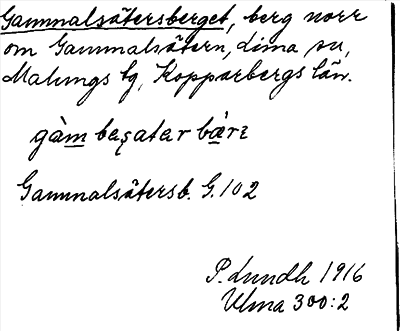 Gammalsätersberget, berg norr
om Gammalsätern, Lima sn,
Malungs tg, Kopparbergs län.
Gammalsätersb. G. 102
P. Lundh 1916
Ulma 300:2